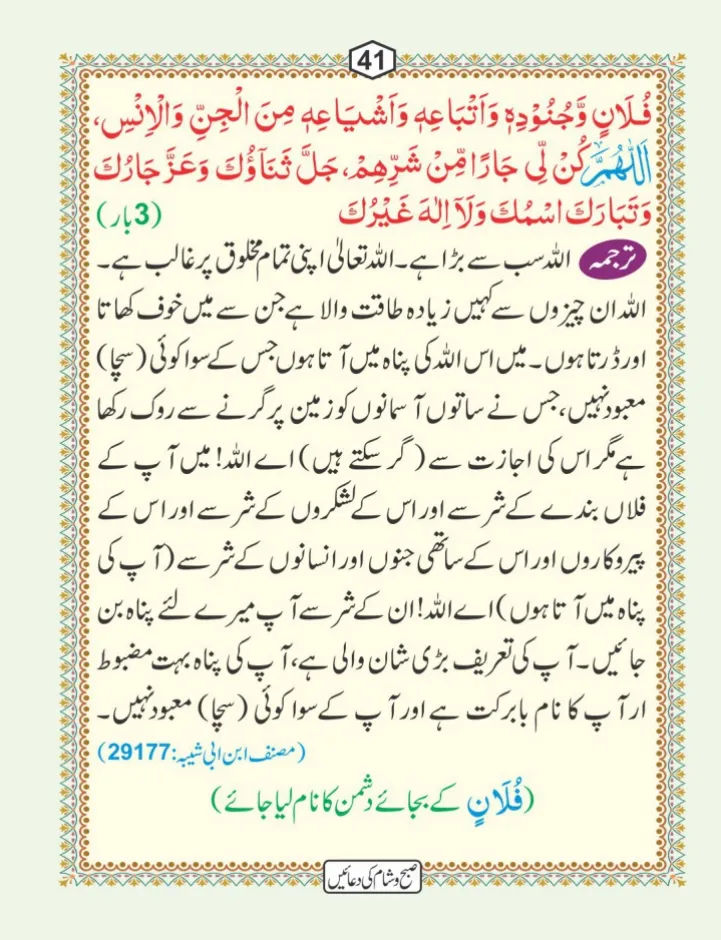 41
فُلَانٍ وَّجُنُوْدِهٖ وَاَتْبَاعِهٖ وَاَشْيَاعِهٖ مِنَ الْجِنِّ وَالْاِنْسِ،
اَللّٰهُمَّ كُنْ لِّى جَارًا مِّنْ شَرِّهِمْ، جَلَّ ثَنَآؤُكَ وَعَزَّ جَارُكَ
وَتَبَارَكَ اسْمُكَ وَلَآ اِلٰهَ غَيْرُكَ (3 بار)
ترجمہ اللہ سب سے بڑا ہے۔ اللہ تعالیٰ اپنی تمام مخلوق پر غالب ہے۔
اللہ ان چیزوں سے کہیں زیادہ طاقت والا ہے جن سے میں خوف کھاتا
اور ڈرتا ہوں۔ میں اس اللہ کی پناہ میں آتا ہوں جس کے سوا کوئی (سچا)
معبود نہیں، جس نے ساتوں آسمانوں کو زمین پر گرنے سے روک رکھا
ہے مگر اس کی اجازت سے (گر سکتے ہیں) اے اللہ! میں آپ کے
فلاں بندے کے شر سے اور اس کے لشکروں کے شر سے اور اس کے
پیروکاروں اور اس کے ساتھی جنوں اور انسانوں کے شر سے (آپ کی
پناہ میں آتا ہوں) اے اللہ! ان کے شر سے آپ میرے لئے پناہ بن
جائیں۔ آپ کی تعریف بڑی شان والی ہے، آپ کی پناہ بہت مضبوط
ار آپ کا نام بابرکت ہے اور آپ کے سوا کوئی (سچا) معبود نہیں۔
(مصنف ابن ابی شیبہ: 29177)
(فُلَانٍ کے بجائے دشمن کا نام لیا جائے)
صبح و شام کی دعائیں